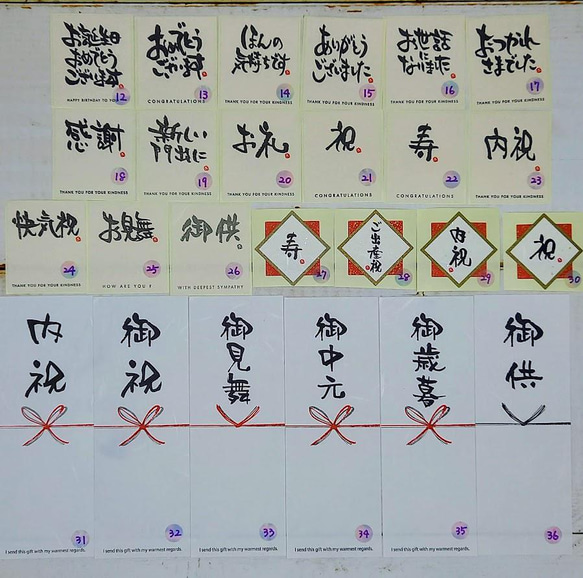 お誕生日
おめでとう
ございます
HAPPY BIRTHDAY TO YOU
12
おめでとう
ございます
CONGRATULATIONS
13
ほんの
気持ちです
THANK YOU FOR YOUR KINDNESS
14
ありがとう
ございました
THANK YOU FOR YOUR KINDNESS
15
お世話に
なりました
THANK YOU FOR YOUR KINDNESS
16
おつかれ
さまでした
THANK YOU FOR YOUR KINDNESS
17
感謝
THANK YOU FOR YOUR KINDNESS
18
新しい
門出に
THANK YOU FOR YOUR KINDNESS
19
お礼
THANK YOU FOR YOUR KINDNESS
20
祝
CONGRATULATIONS
21
寿
CONGRATULATIONS
22
内祝
THANK YOU FOR YOUR KINDNESS
23
快気祝
THANK YOU FOR YOUR KINDNESS
24
お見舞
HOW ARE YOU ?
25
御供
WITH DEEPEST SYMPATHY
26
寿
27
ご出産祝
28
内祝
29
祝
30
内祝
31
I send this gift with my warmest regards.
御祝
32
I send this gift with my warmest regards.
御見舞
33
I send this gift with my warmest regards.
御中元
34
I send this gift with my warmest regards.
御歳暮
35
I send this gift with my warmest regards.
御供
36